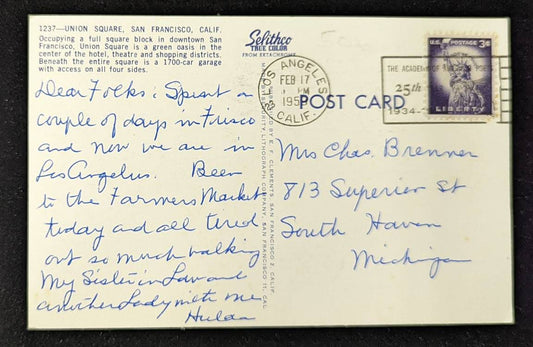 1237—UNION SQUARE, SAN FRANCISCO, CALIF.
Occupying a full square block in downtown San
Francisco, Union Square is a green oasis in the
center of the hotel, theatre and shopping districts.
Beneath the entire square is a 1700-car garage
with access on all four sides.
Selithco
TRUE COLOR
FROM EKTACHROME
Dear Folks: Spent a
couple of days in Frisco
and now we are in
Los Angelus. Been
to the Farmers Market
today and all tired
out so much walking
My Sister in Law and
another Lady with me
Hulda
LOS ANGELES
FEB 17
PM
CALIF.
THE ACADEMY OF
25th
1934-
U.S. POSTAGE 3¢
LIBERTY
POST CARD
Mrs Chas. Brenner
813 Superior St
South Haven
Michigan
BY E. F. CLEMENTS, SAN FRANCISCO 2, CALIF.
LITHOGRAPH COMPANY, SAN FRANCISCO 11, CAL.